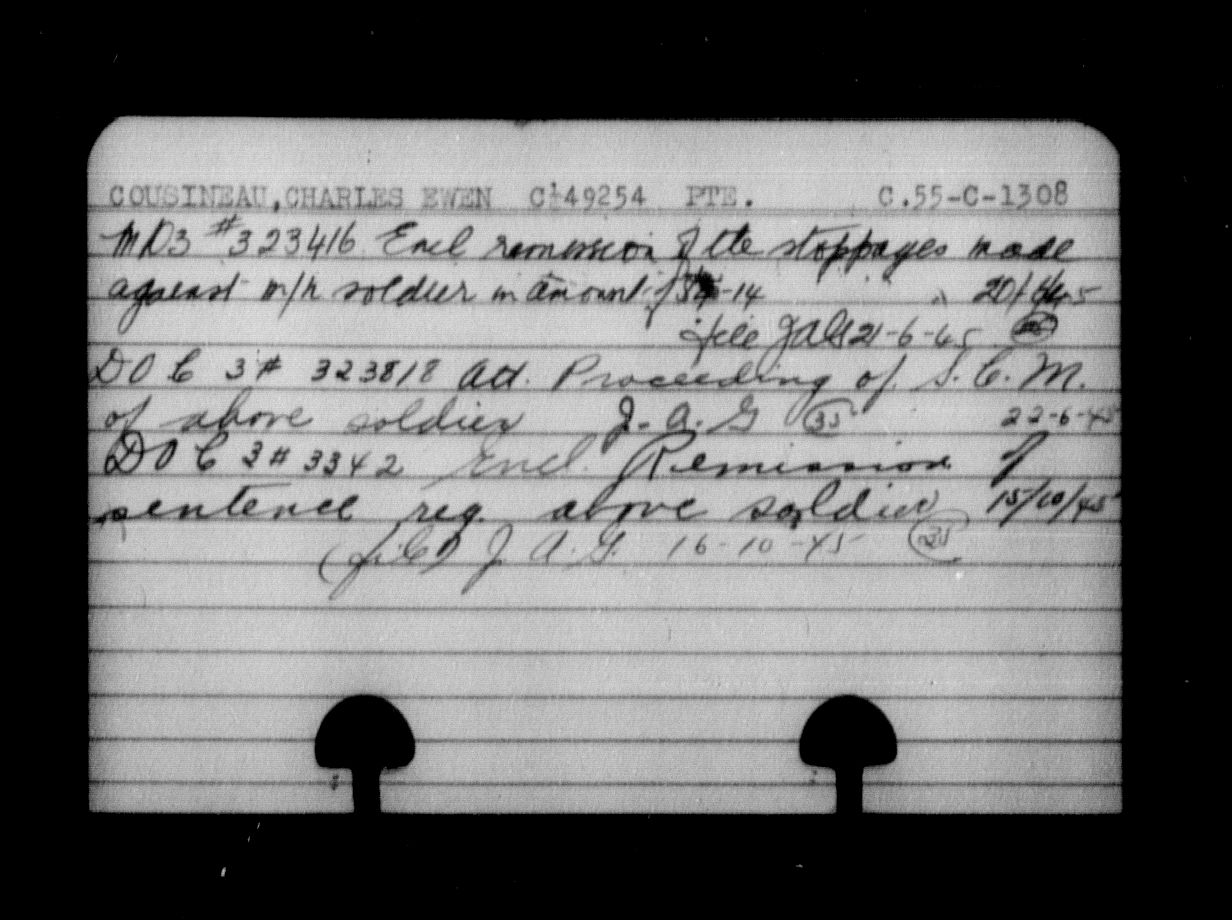 COUSINEAU,CHARLES EWEN C149254 PTE. C.55-C-1308
MD3 #323416 Encl remission of the stoppages made
against m/n soldier in amount of -14 20/6/45
file JAG 21-6-45
DOC 3# 323818 Att. Proceeding of S.C.M.
of above soldier J.A.G 35 22-6-45
DOC 3# 3342 Encl. Remission of
sentence reg. above soldier 15/10/45
(file) J.A.G. 16-10-45 35